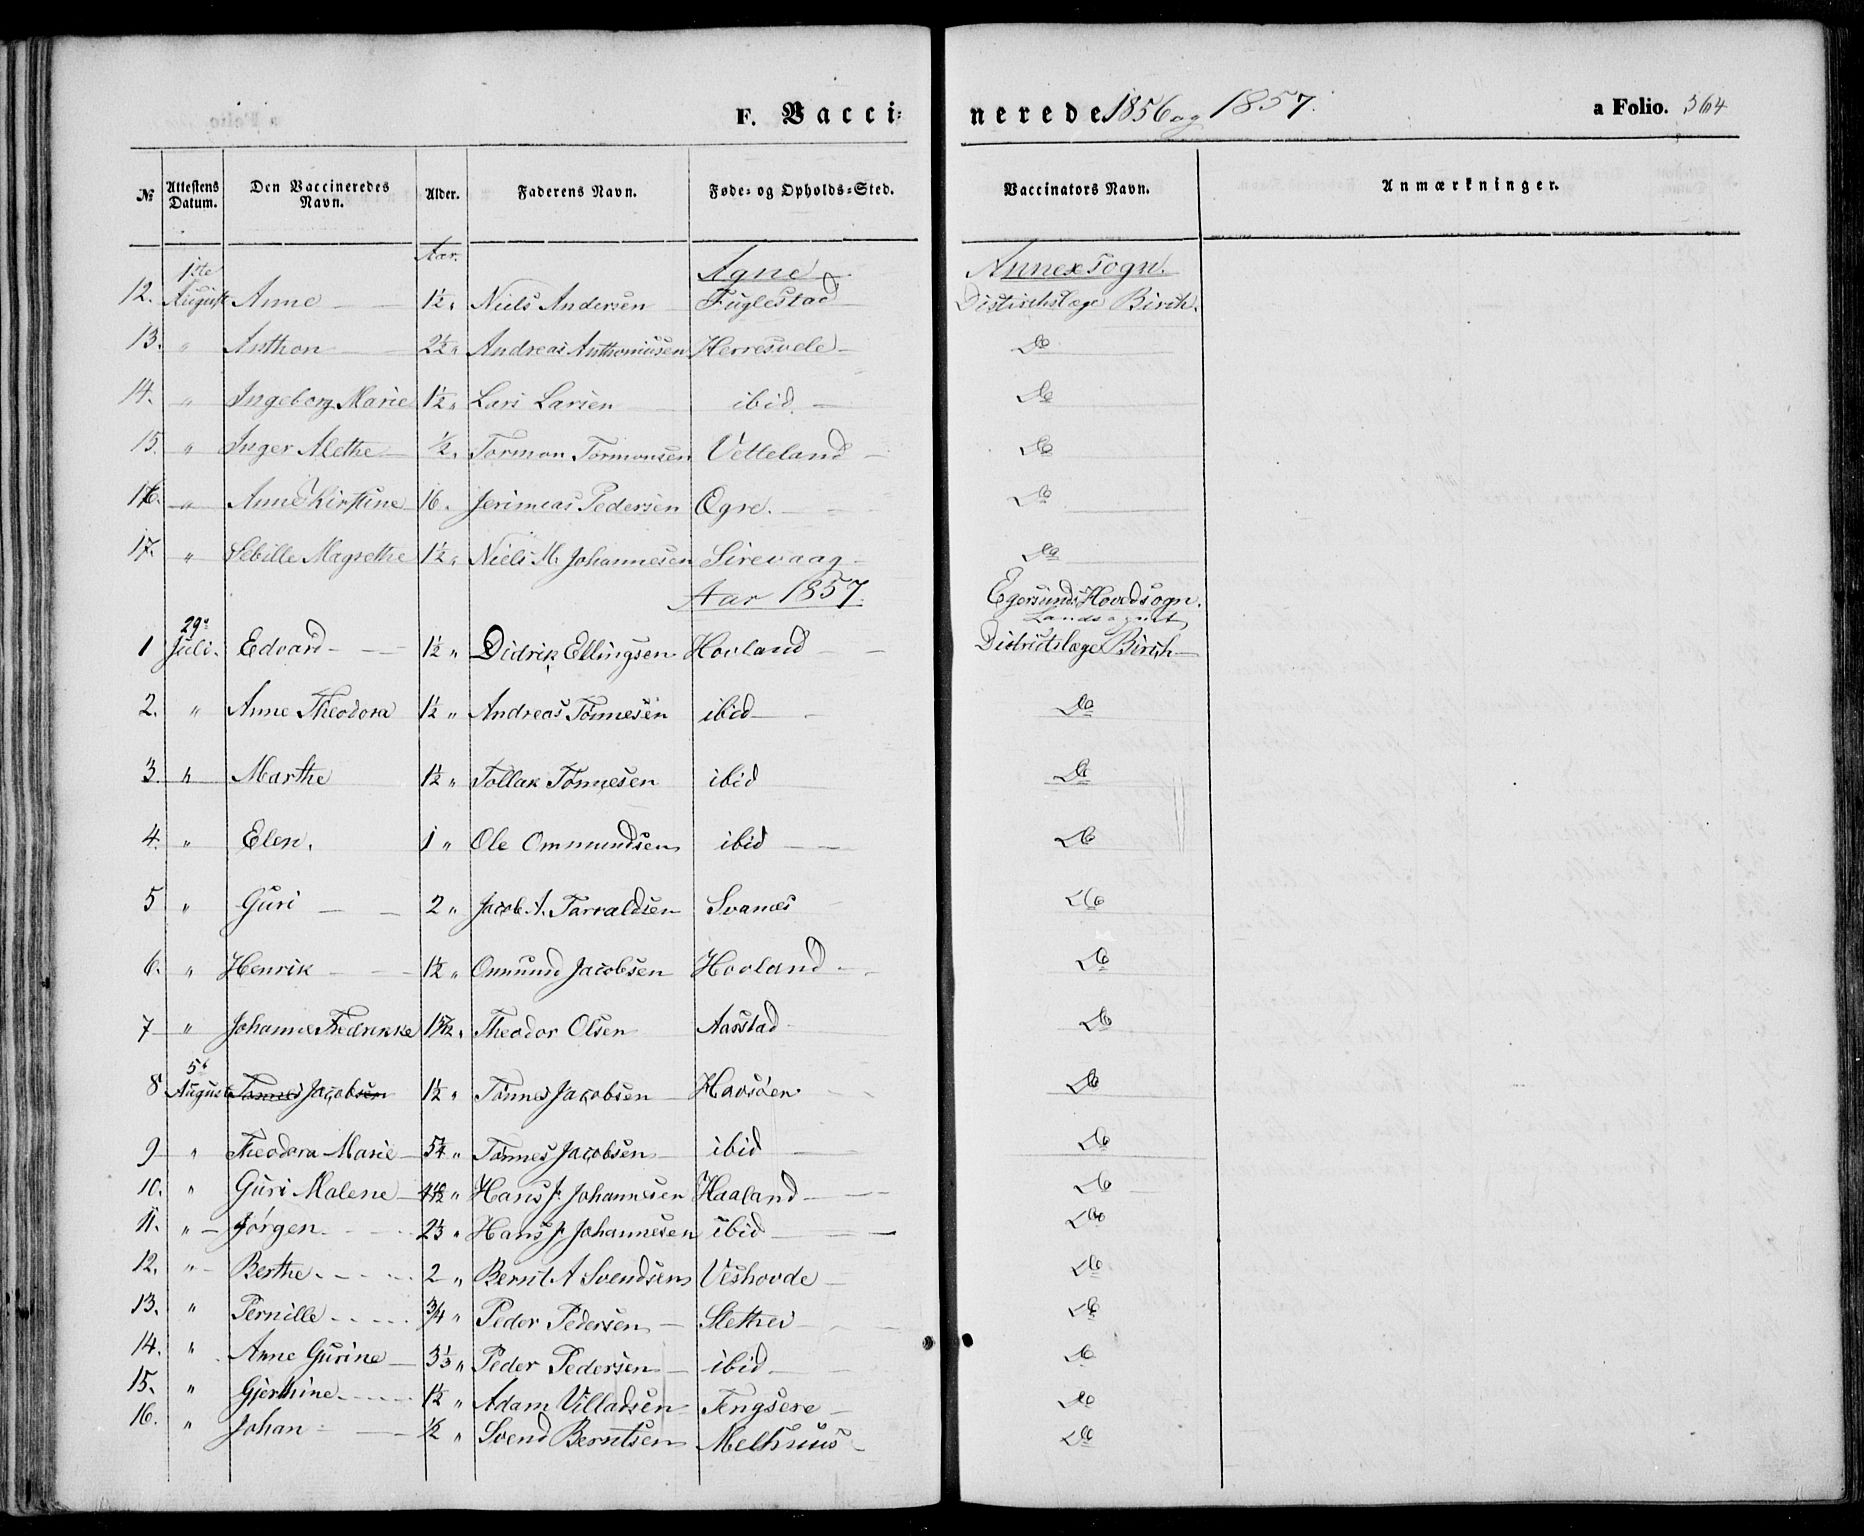 F. Vaccinerede 1856 og 1857. a Folio. 364
№ Attestens Datum. Den Vaccineredes Navn. Alder. Faderens Navn. Føde- og Opholds-Sted. Vaccinators Navn. Anmærkninger.
Aar. Agne Annex Sogn.
12. 1ste August Anne 1½ " Niels Andersen Fuglestad Districtslæge Birch.
13. " Anthon 2½ " Andreas Anthoniusen Herresvele Do
14. " Ingeborg Marie 1½ " Lars Larsen ibid. Do
15. " Inger Alethe ½ " Tormon Tormonsen Vetteland Do
16. " Anne Kirstine 16. Jerimeas Pedersen Ogre. Do
17. " Sebille Magrethe 1½ " Niels M. Johannesen Sirevaag Do
Aar 1857. Egersunds Hovedsogn.
Landsognet
1 29de Juli. Edvard 1½ " Didrik Ellingsen Hovland Districtslæge Birch
2. " Anne Theodora 1½ " Andreas Tønnesen ibid Do
3. " Marthe 1½ " Tollak Tønnesen ibid Do
4. " Elen. 1 " Ole Ommundsen ibid Do
5 " Guri 2 " Jacob A. Tarraldsen Svanes Do
6. " Henrik 1½ " Ommund Jacobsen Hovland Do
7 " Johanne Fredrikke 1 5/12 " Theodor Olsen Aarstad Do
8 5t August Tønnes Jacobsen 1½ " Tønnes Jacobsen Havsøen Do
9 " Theodora Marie 5¼ " Tønnes Jacobsen ibid Do
10. " Guri Malene 4 10/12 " Hans J. Johannesen Haaland Do
11. " Jørgen 2⅓ " Hans J. Johannesen ibid Do
12. " Berthe 2 " Bernt A Svendsen Veshovde Do
13. " Pernille ¾ " Peder Pedersen Slethei Do
14. " Anne Gurine 3⅓ " Peder Pedersen ibid Do
15. " Gjerthine 1½ " Adam Villadsen Tengsere Do
16. " Johan ½ " Svend Berntsen Melhuus Do